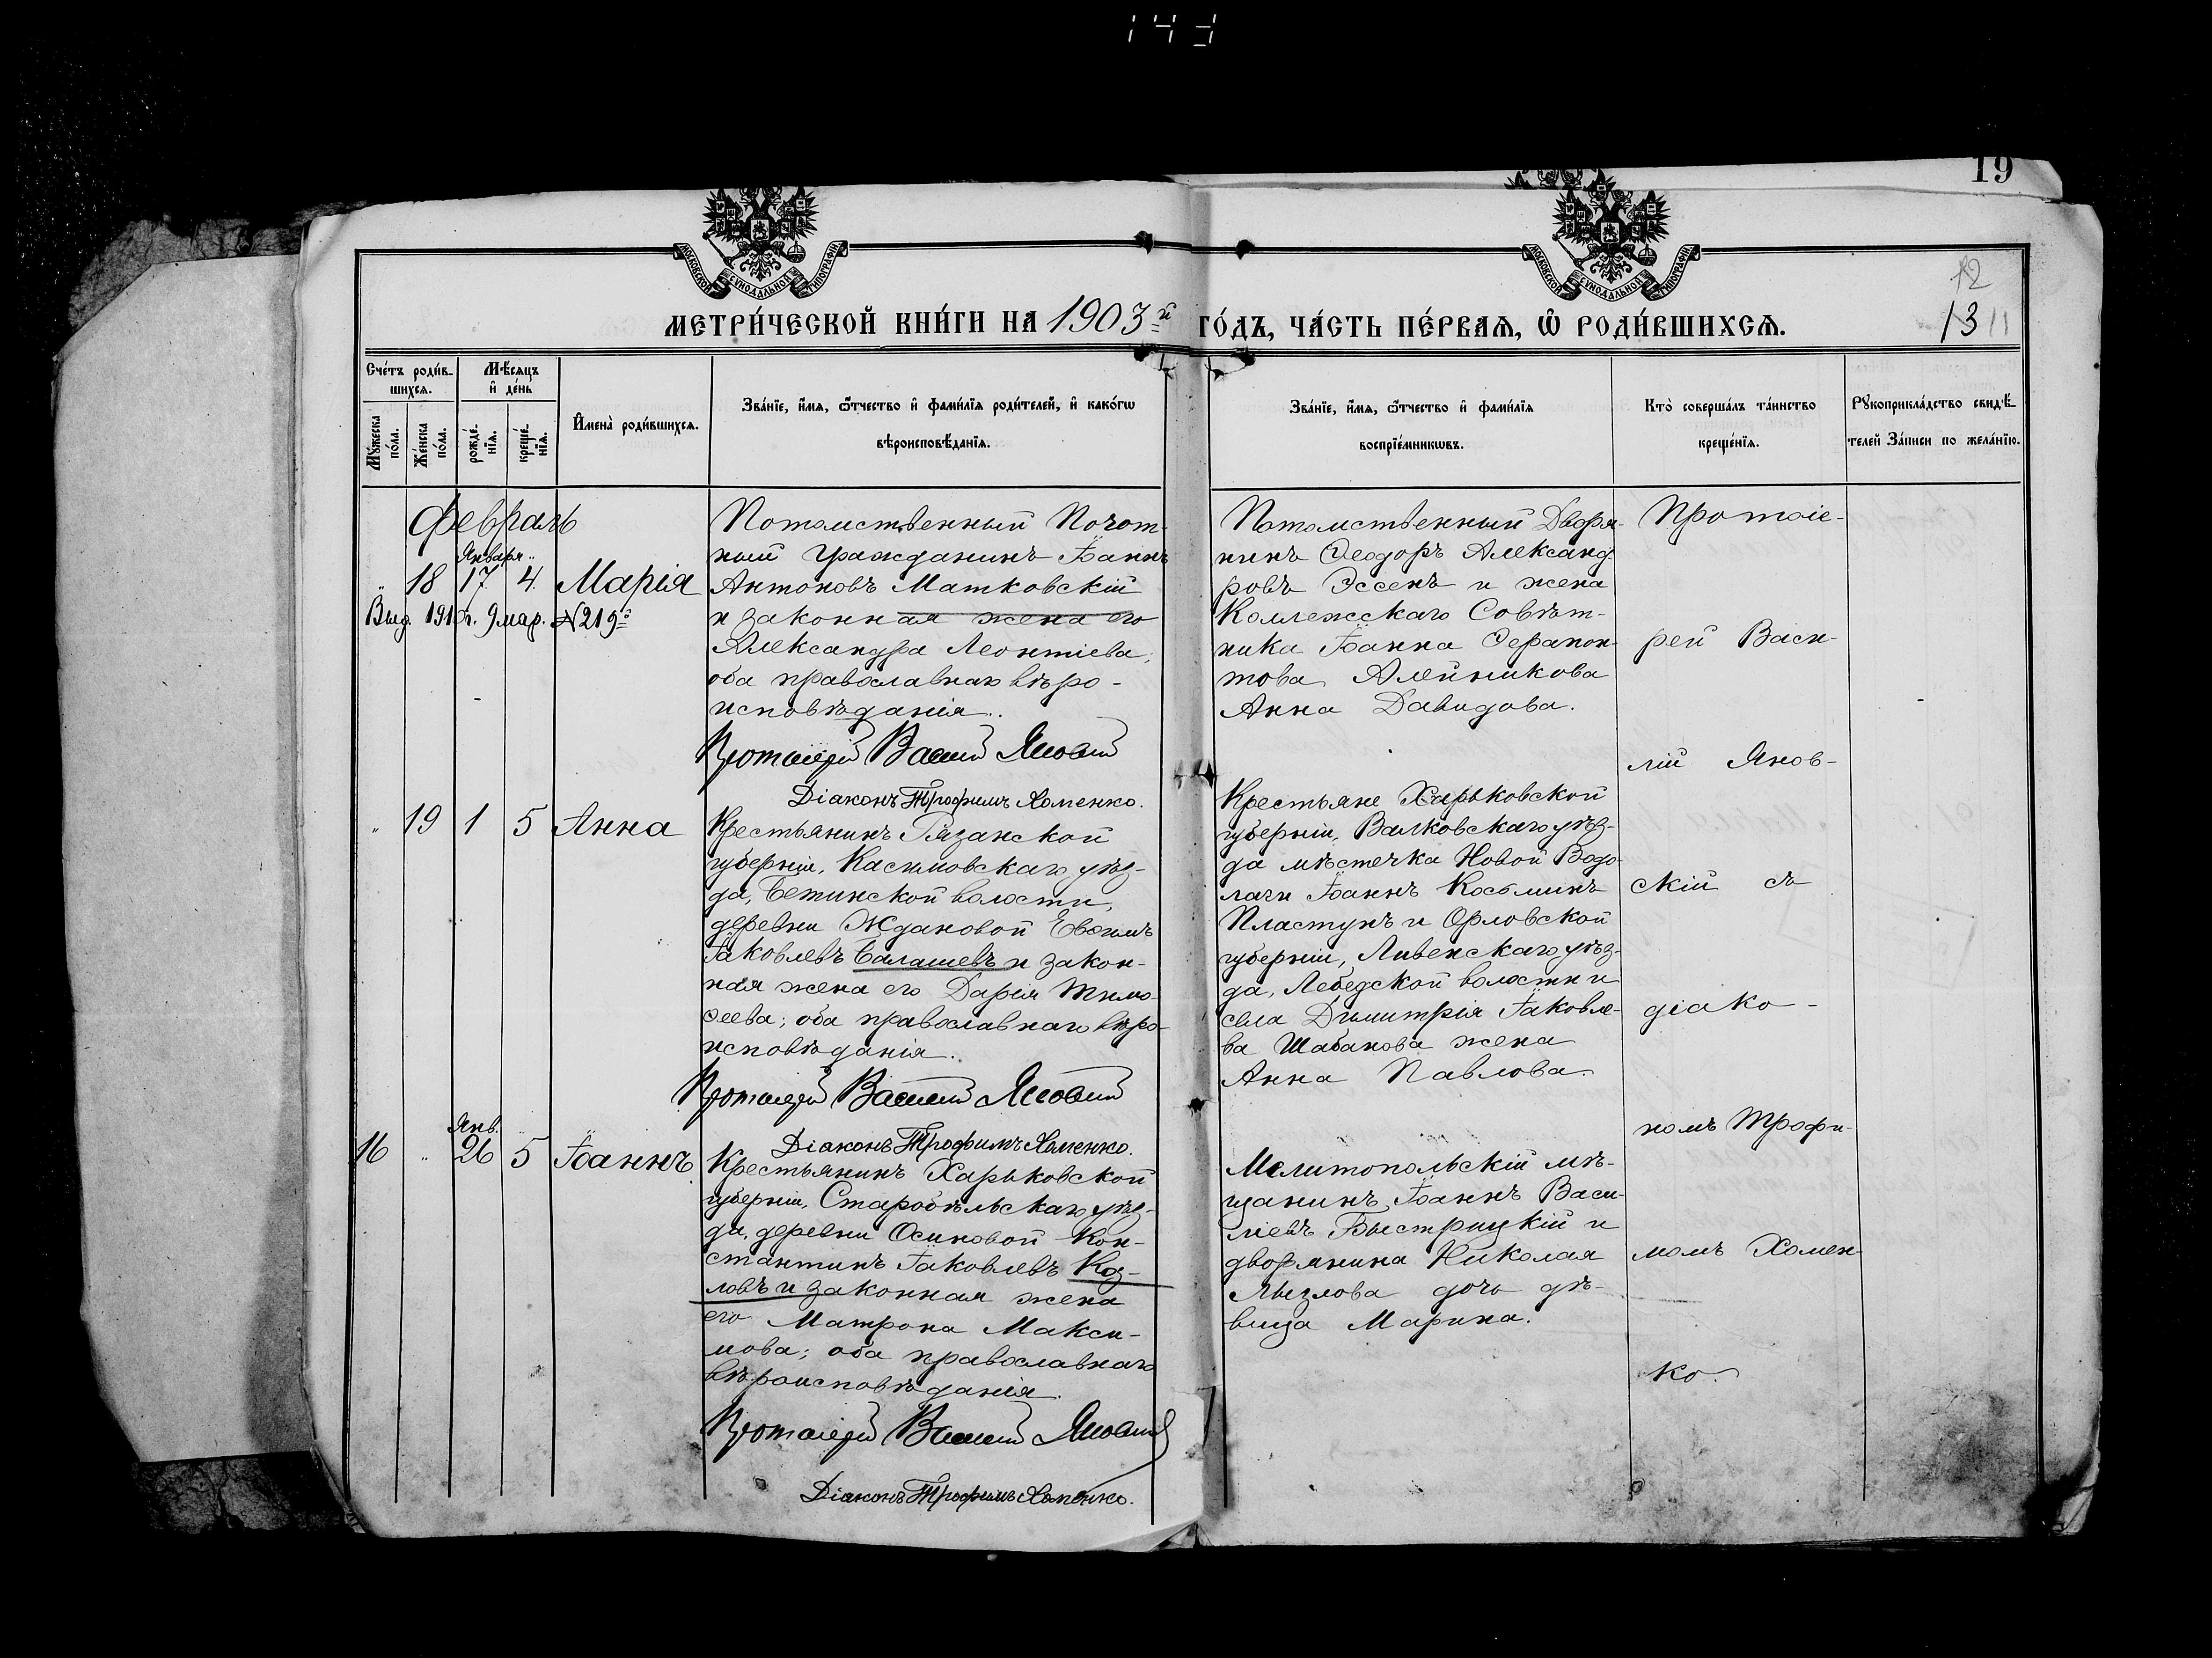 143
19
МОСКОВСКОЙ СУНОДАЛЬНОЙ ТИПОГРАФІИ
МОСКОВСКОЙ СУНОДАЛЬНОЙ ТИПОГРАФІИ
12
13 11
МЕТРИ́ЧЕСКОЙ КНИ́ГИ НА 1903й ГО́ДЪ, ЧА́СТЬ ПЕ́РВАѦ, Ѿ РОДИ́ВШИХСѦ.
Сче́тъ роди́в-
шихсѧ.
Мѣ́сѧцъ
и҆ де́нь
Мꙋ́жеска по́ла.
Же́нска по́ла.
рожде́-
нїѧ.
креще́-
нїѧ.
И҆мена̀ роди́вшихсѧ.
Зва́нїе, и҆́мѧ, ѻ҆́тчество и҆ фамѝлїѧ роди́телей, и҆ како́гѡ
вѣроисповѣ́данїѧ.
Зва́нїе, и҆́мѧ, ѻ҆́тчество и҆ фамѝлїѧ
воспрїе́мникѡвъ.
Кто̀ соверша́лъ та́инство
креще́нїѧ.
Рꙋкоприкла́дство свидѣ́-
телей За́писи по жела́нїю.
Февраль
Января
„ 18 17 4. Марія
Выд. 1916г. 9 мар. №219
Потомственный Почот-
ный Гражданинъ Іоаннъ
Антоновъ Матковскій
и законная жена его
Александра Леонтіева;
оба православнаго вѣро-
исповѣданія.
Протоіерей Василій Яновскій
Діаконъ Трофимъ Хоменко.
Потомственный Дворя-
нинъ Ѳеодоръ Александ-
ровъ Эссенъ и жена
Коллежскаго Совѣт-
ника Іоанна Серапон-
това Алейникова
Анна Давидова.
Протоіе-
рей Васи-
лій Янов-
скій съ
діако-
номъ Трофи-
момъ Хомен-
ко.
„ 19 1 5 Анна
Крестьянинъ Рязанской
губерніи, Касимовскаго уѣз-
да, Бетинской волости,
деревни Ждановой Евѳимъ
Іаковлевъ Балашевъ и закон-
ная жена его Дарія Тимо-
ѳеева; оба православнаго вѣро-
исповѣданія.
Протоіерей Василій Яновскій
Діаконъ Трофимъ Хоменко.
Крестьяне Харьковской
губерніи, Валковскаго уѣз-
да мѣстечка Новой Водо-
лаги Іоаннъ Косьминъ
Пластунъ и Орловской
губерніи, Ливенскаго уѣз-
да, Лебедской волости и
села Димитрія Іаковле-
ва Шабанова жена
Анна Павлова.
Янв.
16 „ 26 5 Іоаннъ
Крестьянинъ Харьковской
губерніи, Старобѣльскаго уѣз-
да, деревни Осиновой Кон-
стантинъ Іаковлевъ Коз-
ловъ и законная жена
его Матрона Макси-
мова; оба православнаго
вѣроисповѣданія.
Протоіерей Василій Яновскій
Діаконъ Трофимъ Хоменко.
Мелитопольскій мѣ-
щанинъ Іоаннъ Васи-
ліевъ Быстрицкій и
дворянина Николая
Лызлова дочь дѣ-
вица Марина.